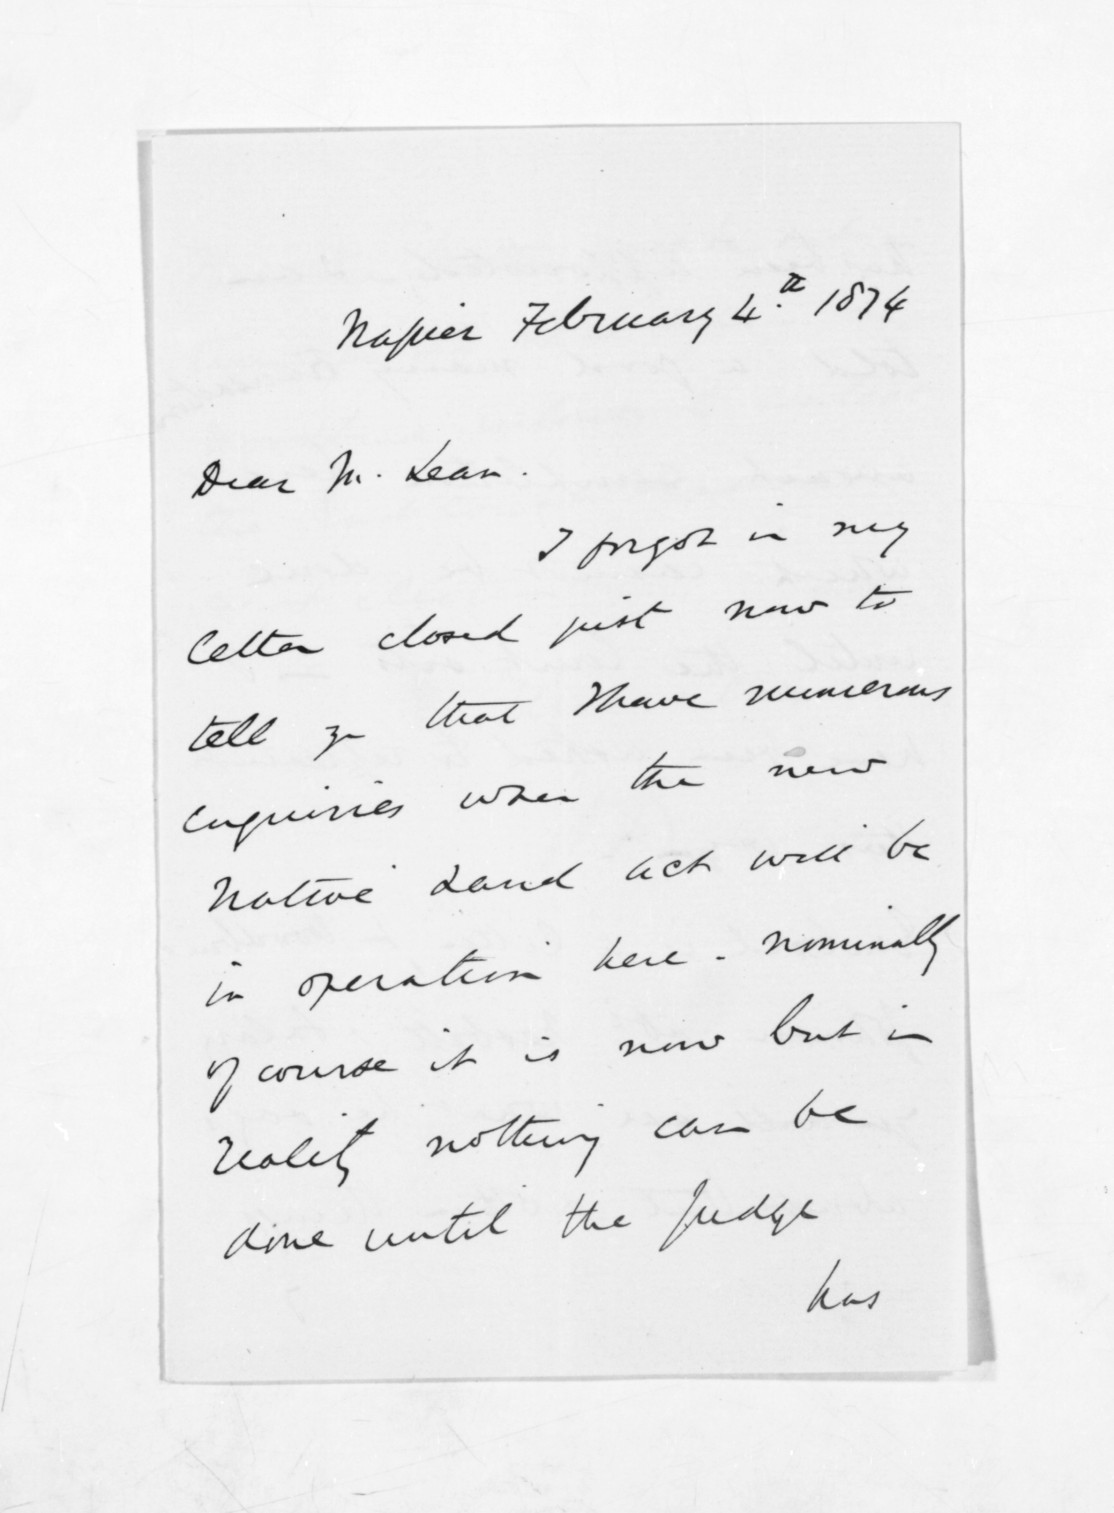 Napier February 4.th 1874
Dear M. Lean.
I forgot in my
letter closed just now to
tell yu that I have numerous
enquiries when the new
Native Land Act will be
in operation here - nominally
of course it is now but in
reality nothing can be
done until the Judge
has